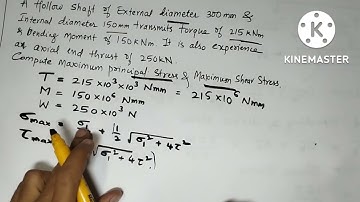 A Hollow Shaft of External diameter 300mm &
Internal diameter 150mm transmits torque of 215 kNm
& Bending Moment of 150kNm. It is also experience
an axial end thrust of 250kN
Compute Maximum principal Stress & Maximum Shear Stress.
T = 215×10³×10³ Nmm = 215×10⁶ Nmm
M = 150×10⁶ Nmm
W = 250×10³ N
σmax = σ₁ + 1/2 √σ₁² + 4τ²
τmax √σ₁² + 4τ²
KINEMASTER